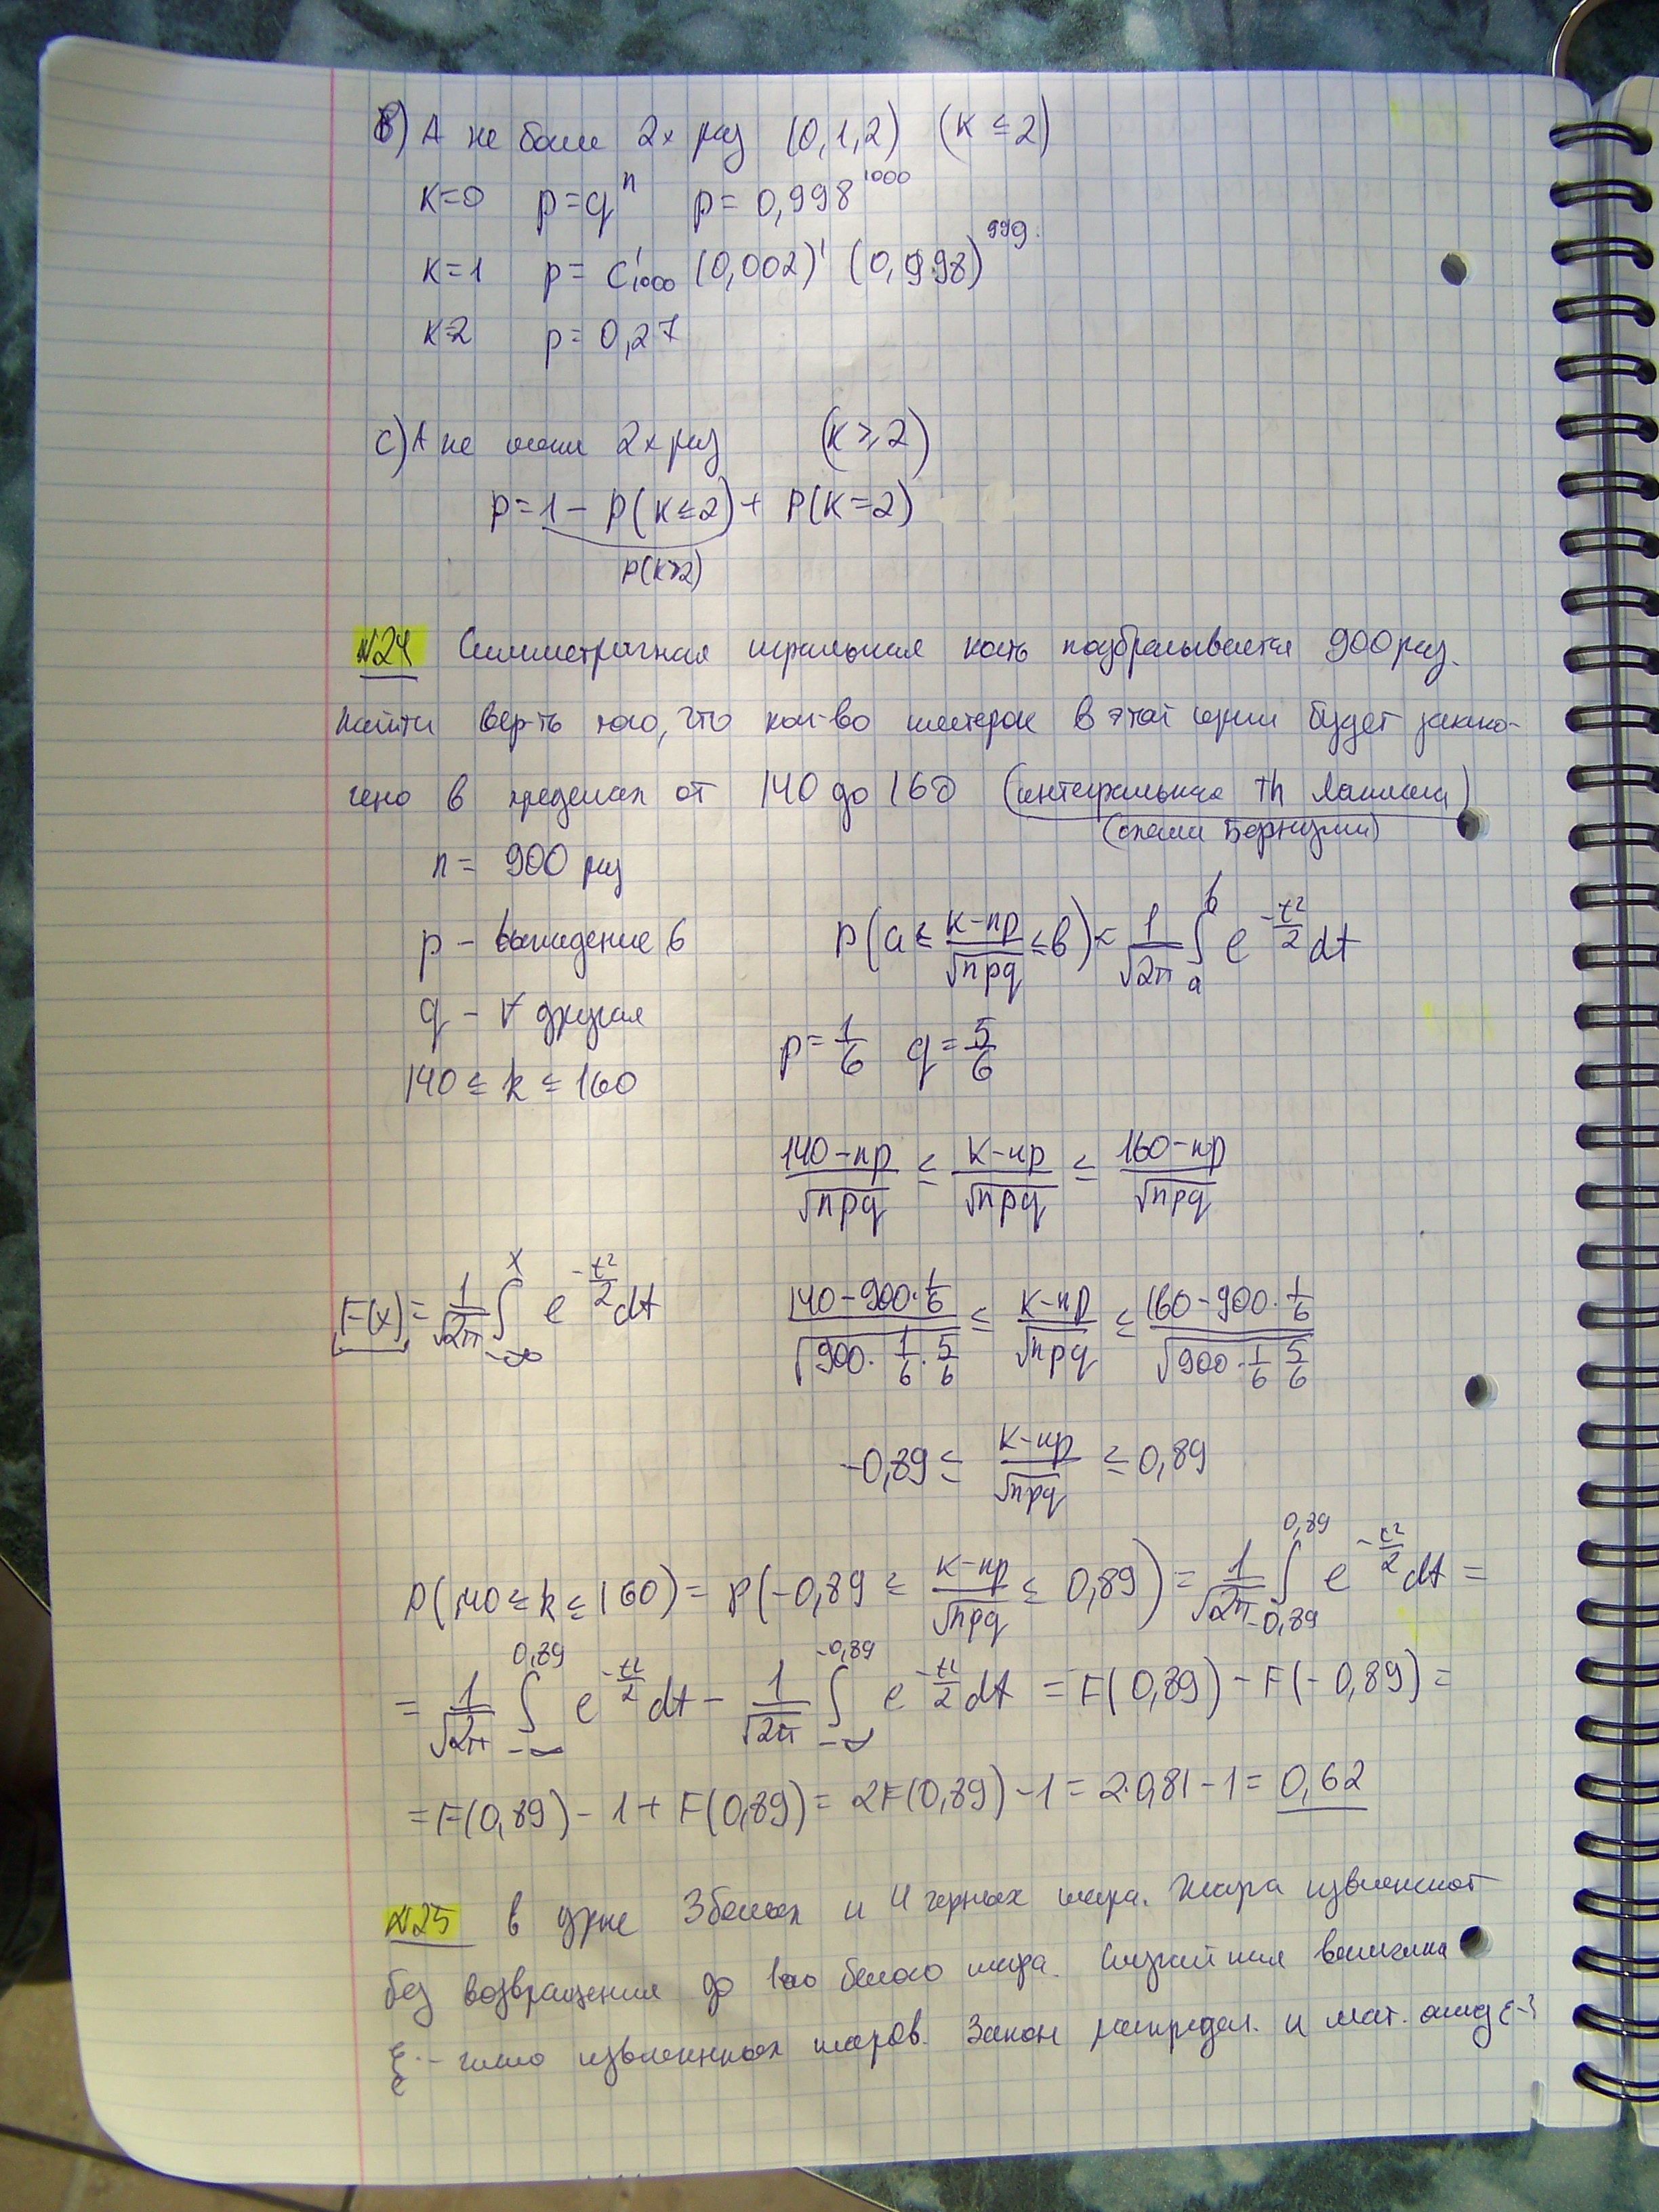 В) А не более 2х раз (0,1,2) (K ≤ 2)
K=0 p=qⁿ p= 0,998¹⁰⁰⁰
K=1 p= C¹₁₀₀₀ (0,002)¹ (0,998)⁹⁹⁹.
K=2 p= 0,27
C) А не менее 2х раз (K ≥ 2)
P=1 − P(K≤2)+ P(K=2)
P(K>2)
N24 Симметричная игральная кость подбрасывается 900 раз.
Найти вер-ть того, что кол-во шестерок в этой серии будет заклю-
чено в пределах от 140 до 160 (интегральная Th Лапласа)
(схема Бернулли)
n = 900 раз
p – выпадение 6
P(a ≤ (K−np)/√(npq) ≤ b) < 1/√(2π) ∫ₐᵇ e^(−t²/2) dt
q – ∀ другая
p = 1/6 q = 5/6
140 ≤ k ≤ 160
(140−np)/√(npq) ≤ (K−np)/√(npq) ≤ (160−np)/√(npq)
F(x) = 1/√(2π) ∫_(−∞)^x e^(−t²/2) dt
(140−900·1/6)/√(900·1/6·5/6) ≤ (K−np)/√(npq) ≤ (160−900·1/6)/√(900·1/6 5/6)
−0,89 ≤ (K−np)/√(npq) ≤ 0,89
P(140 ≤ k ≤ 160) = P(−0,89 ≤ (K−np)/√(npq) ≤ 0,89) = 1/√(2π) ∫_(−0,89)^(0,89) e^(−t²/2) dt =
= 1/√(2π) ∫_(−∞)^(0,89) e^(−t²/2) dt − 1/√(2π) ∫_(−∞)^(−0,89) e^(−t²/2) dt = F(0,89) − F(−0,89) =
= F(0,89) − 1 + F(0,89) = 2F(0,89) − 1 = 2·0,81 − 1 = 0,62
N25 В урне 3 белых и 4 черных шара. Шара извлекают
без возвращения до 1го белого шара. Случайная величина
ξ – число извлеченных шаров. Закон распредел. и мат. ожид ξ-?